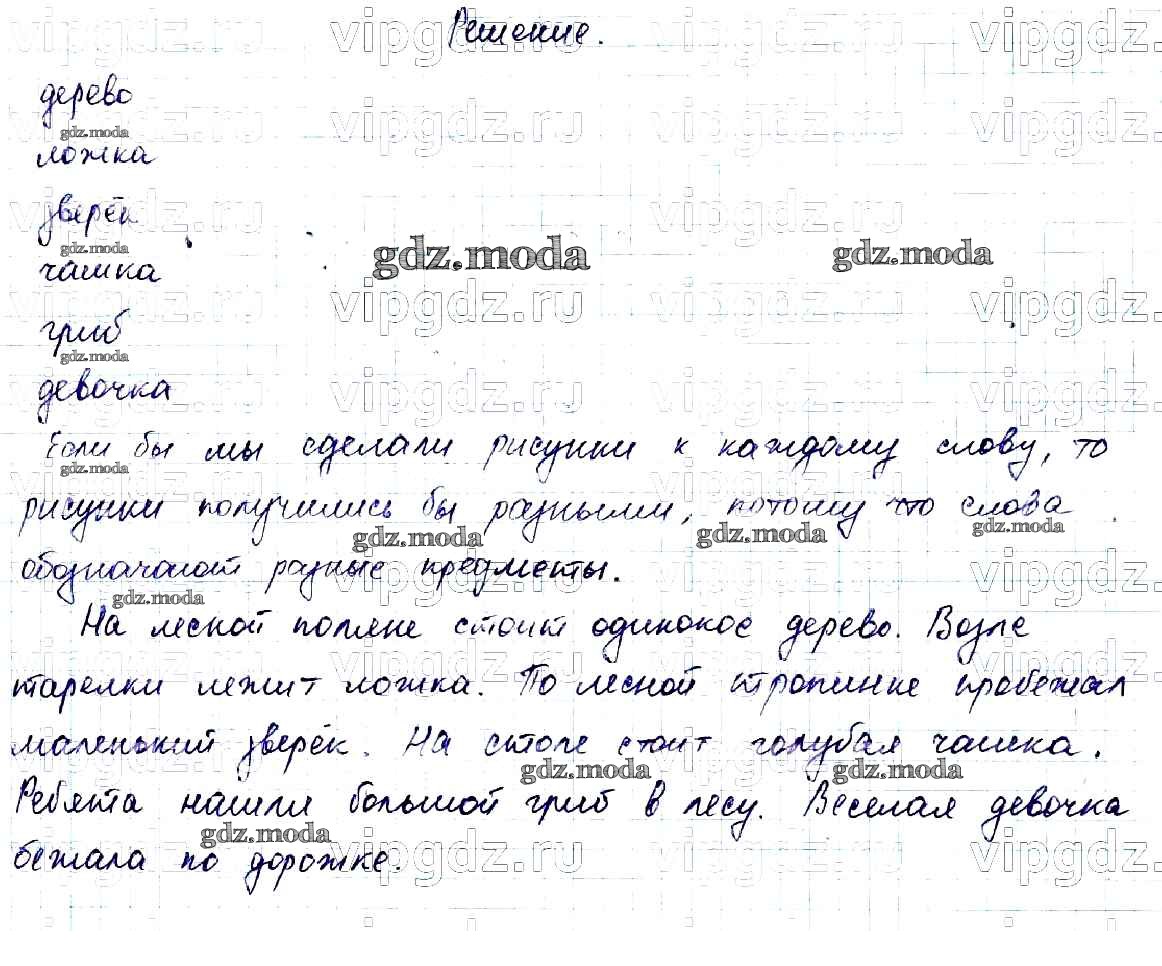 Решение.
дерево
ложка
зверёк
чашка
гриб
девочка
Если бы мы сделали рисунки к каждому слову, то
рисунки получились бы разными, потому что слова
обозначают разные предметы.
На лесной поляне стоит одинокое дерево. Возле
тарелки лежит ложка. По лесной тропинке пробежал
маленький зверёк. На столе стоит голубая чашка.
Ребята нашли большой гриб в лесу. Веселая девочка
бежала по дорожке.
vipgdz.ru
gdz.moda